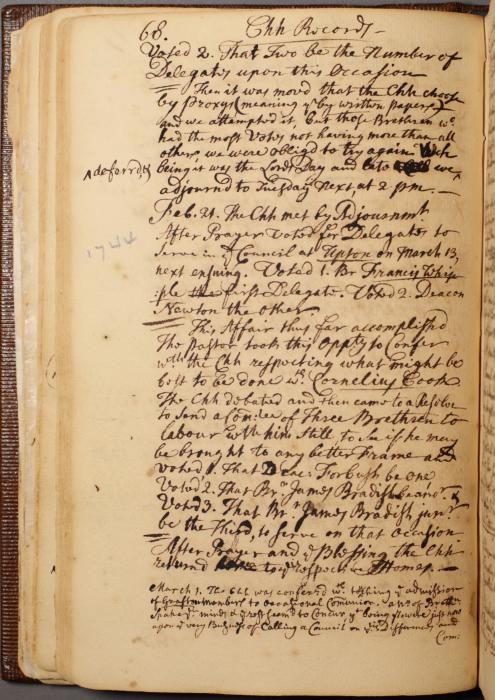 68. Chh Records-
Voted 2. That Two be the Number of
Delegates upon this Occasion
Then it was movd that the Chh choose
by Proxys (meaning yy by written Papers)
and we attempted it but those Brethren wo
had the most Votes not having more than all
others we were obligd to try again. Wch
deferrd, &
being it was the Lords Day and late we
adjournd to Tuesday next at 2 pm. —
Feb. 21. The Chh met by Adjournmt
After Prayer Voted for Delegates to
1744
serve in ye Council at Upton on March 13,
next ensuing. Voted 1. Br Francis Whip
ple the first Delegate. Voted 2. Deacon
Newton the other.
This Affair thus far accomplishd
The Pastor took this Oppty to Confer
wth the Chh respecting what might be
best to be done wth Cornelius Cook
The Chh debated and then came to a Resolve
to send a Comtee of Three Brethren to
labour with him still to see if he may
be brought to any better Frame and
voted 1. That Deac. Forbush be one
Voted 2. That Br James Bradish be anor. &
Voted 3. That Br James Bradish junr
be the Third, to serve on that Occasion
After Prayer and ye Blessing the Chh
returnd to yr respective Homes. —
March 1. The Chh was conferrd wth touching ye admission
of members to Occasional Communion.
minds & yy seemd to Concur yt being now just
upon ye very Business of Calling a Council on Differences, and
Com: